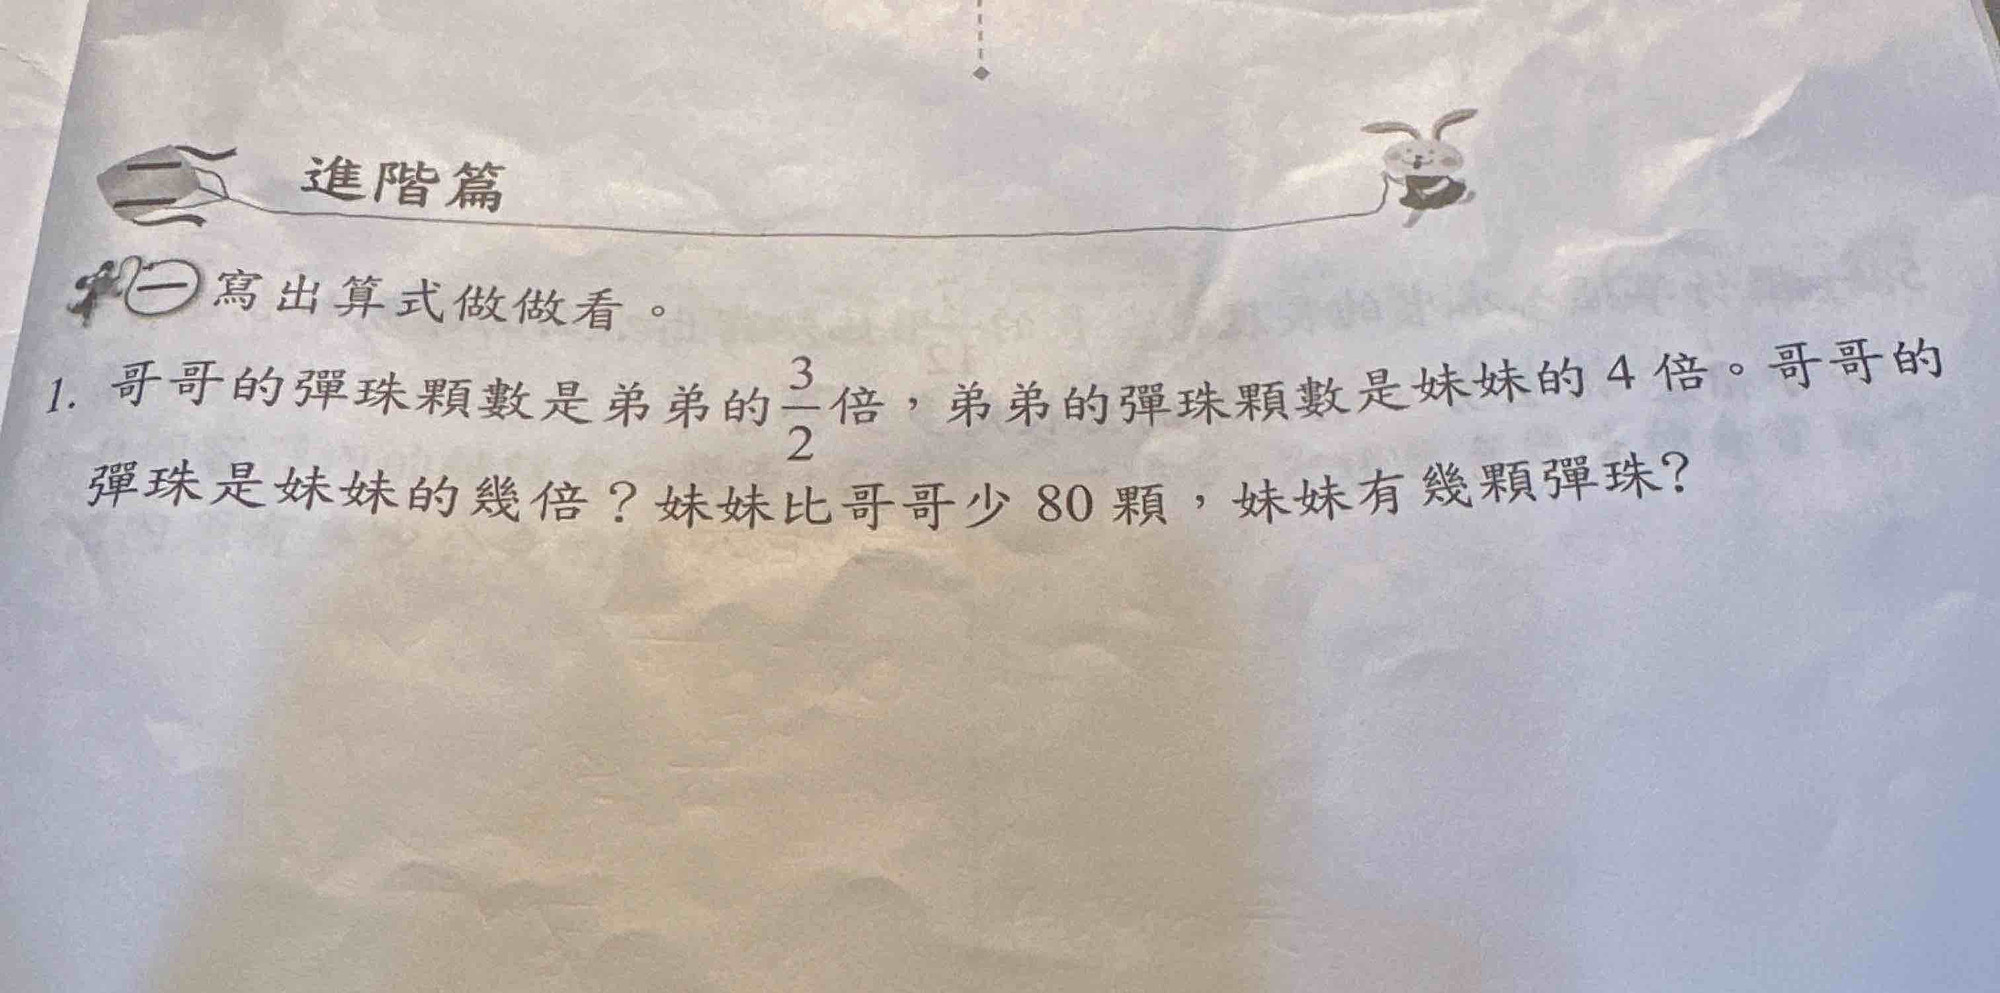 二 進階篇
㊀寫出算式做做看。
1. 哥哥的彈珠顆數是弟弟的3/2倍,弟弟的彈珠顆數是妹妹的4倍。哥哥的
彈珠是妹妹的幾倍?妹妹比哥哥少80顆,妹妹有幾顆彈珠?